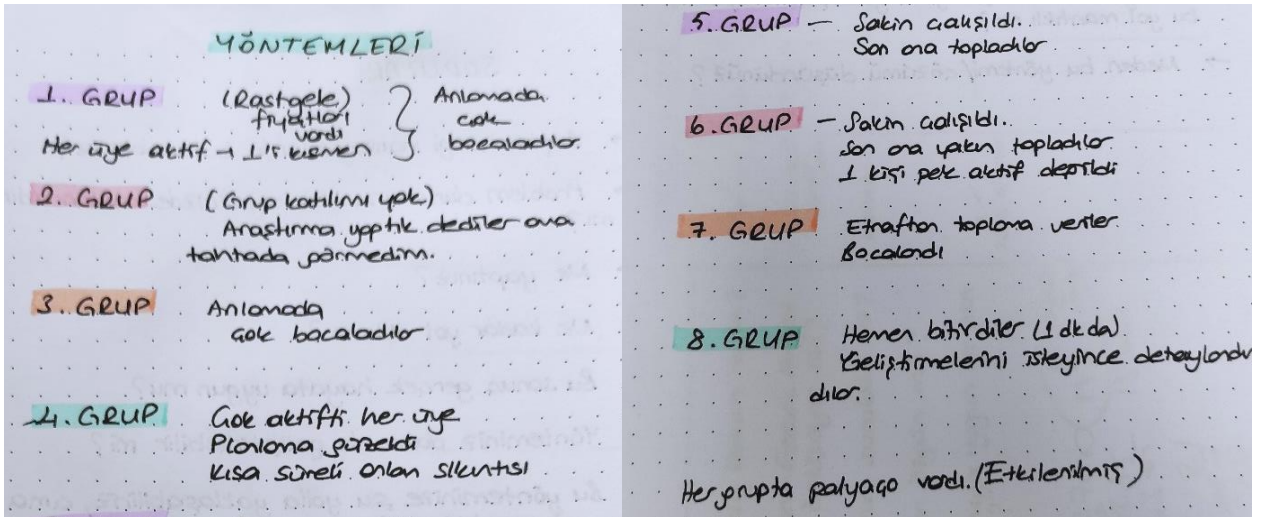 YÖNTEMLERİ
1. GRUP (Rastgele) Anlamada
fiyatları çok
vardı bocaladılar.
Her üye aktif → 1'i kısmen
2. GRUP (Grup katılımı yok)
Araştırma yaptık dediler ama
tahtada görmedim.
3. GRUP Anlamada
çok bocaladılar
4. GRUP Çok aktifti her üye
Planlama güzeldi
Kısa süreli anlam sıkıntısı
5. GRUP — Sakin çalışıldı.
Son ana topladılar
6. GRUP — Sakin çalışıldı.
Son ana yakın topladılar
1 kişi pek aktif değildi
7. GRUP Etraftan toplama veriler
Bocalandı
8. GRUP Hemen bitirdiler (1 dk da)
Geliştirmelerini isteyince detaylandır
dılar.
Her grupta palyaço vardı. (Etkilenilmiş)